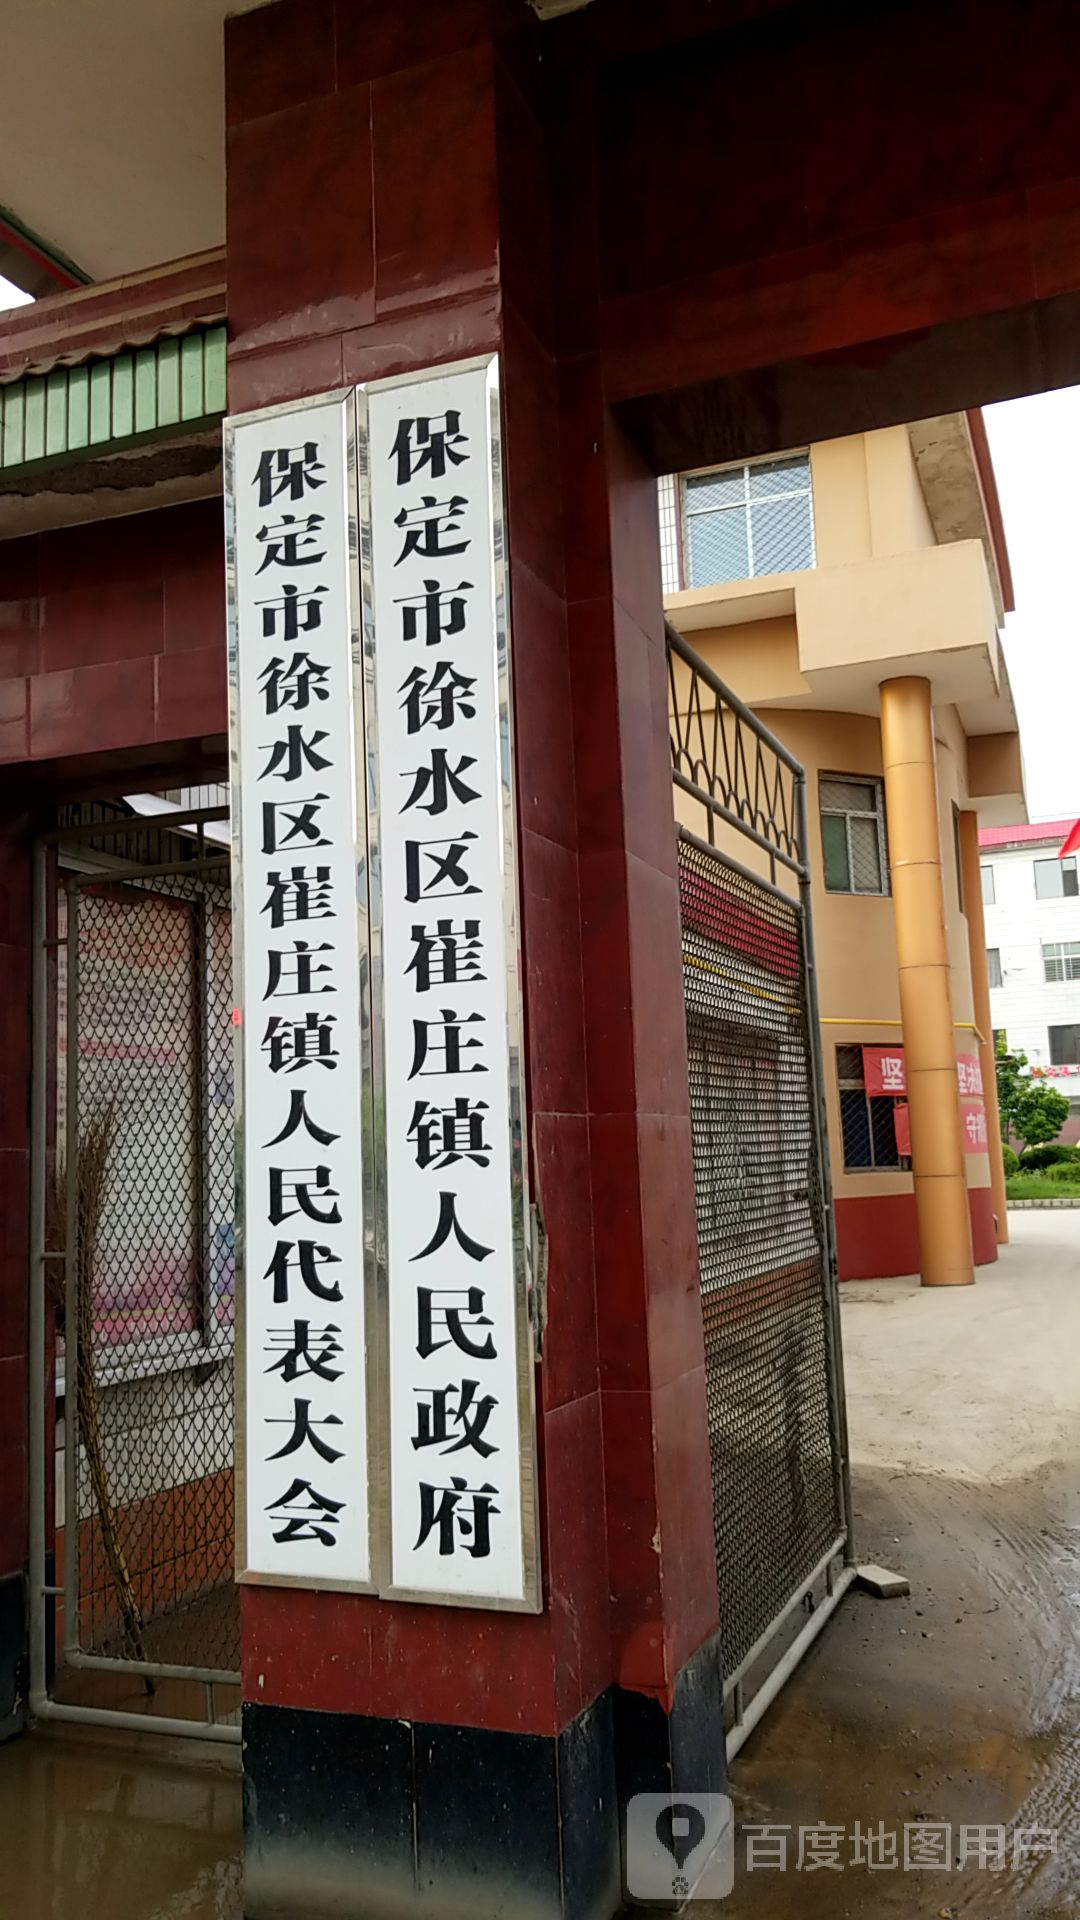 保定市徐水区崔庄镇人民政府
保定市徐水区崔庄镇人民代表大会
坚
坚决
守
百度地图用户